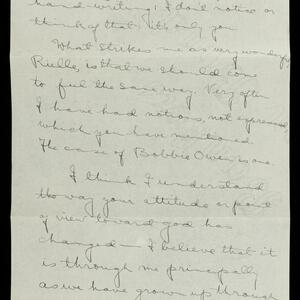 hand-writing; I don't notice or
think of that: it's only you
What strikes me as very wonderful,
Rielle, is that we should come
to feel the same way. Very often
I have had notions, not expressed,
which you have mentioned.
The case of Bobbie Owen is one.
I think I understand
the way your attitude or point
of view toward god has
changed — I believe that it
is through me principally
as we have grown up through